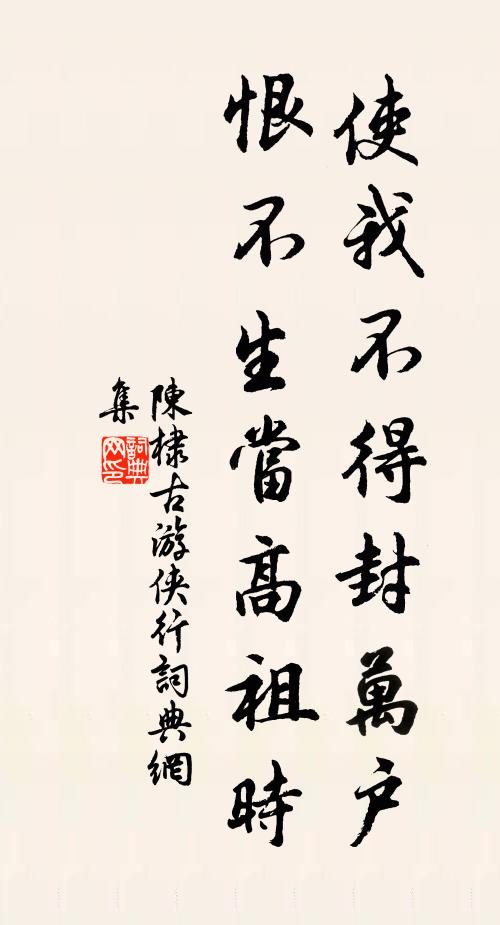 使我不得封萬户
恨不生當高祖時
陳棣古游俠行詞典網
集
詞典網印